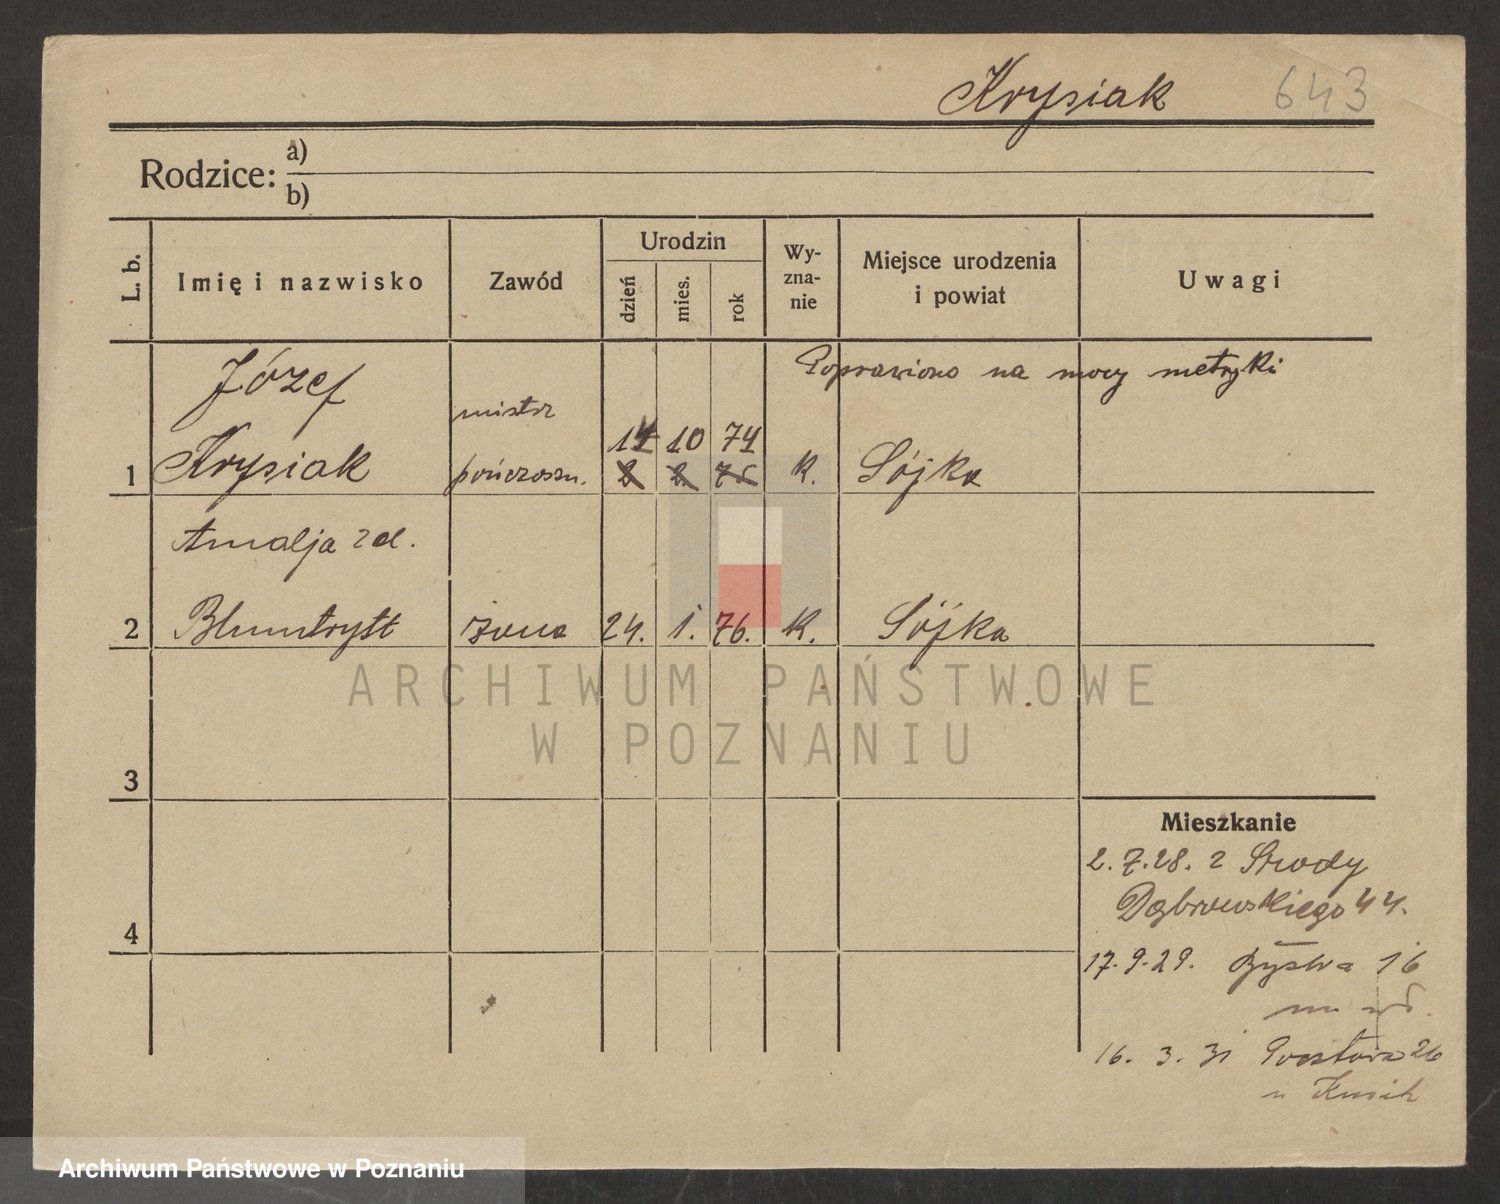 Krysiak 643
Rodzice: a)
b)
L. b.
Imię i nazwisko
Zawód
Urodzin
dzień
mies.
rok
Wy-
zna-
nie
Miejsce urodzenia
i powiat
Uwagi
Poprawiono na mocy metryki
Józef
mistrz
14 10 74
1 Krysiak pończoszn. 2 2 75 K. Sójka
Amalja zd.
2 Blumtrytt żona 24. 1. 76. K. Sójka
ARCHIWUM PAŃSTWOWE
W POZNANIU
3
Mieszkanie
2.7.28. z Środy
Dąbrowskiego 44.
4
17.9.29. Bystra 16
16. 3. 31 Prosta 26
u
Archiwum Państwowe w Poznaniu